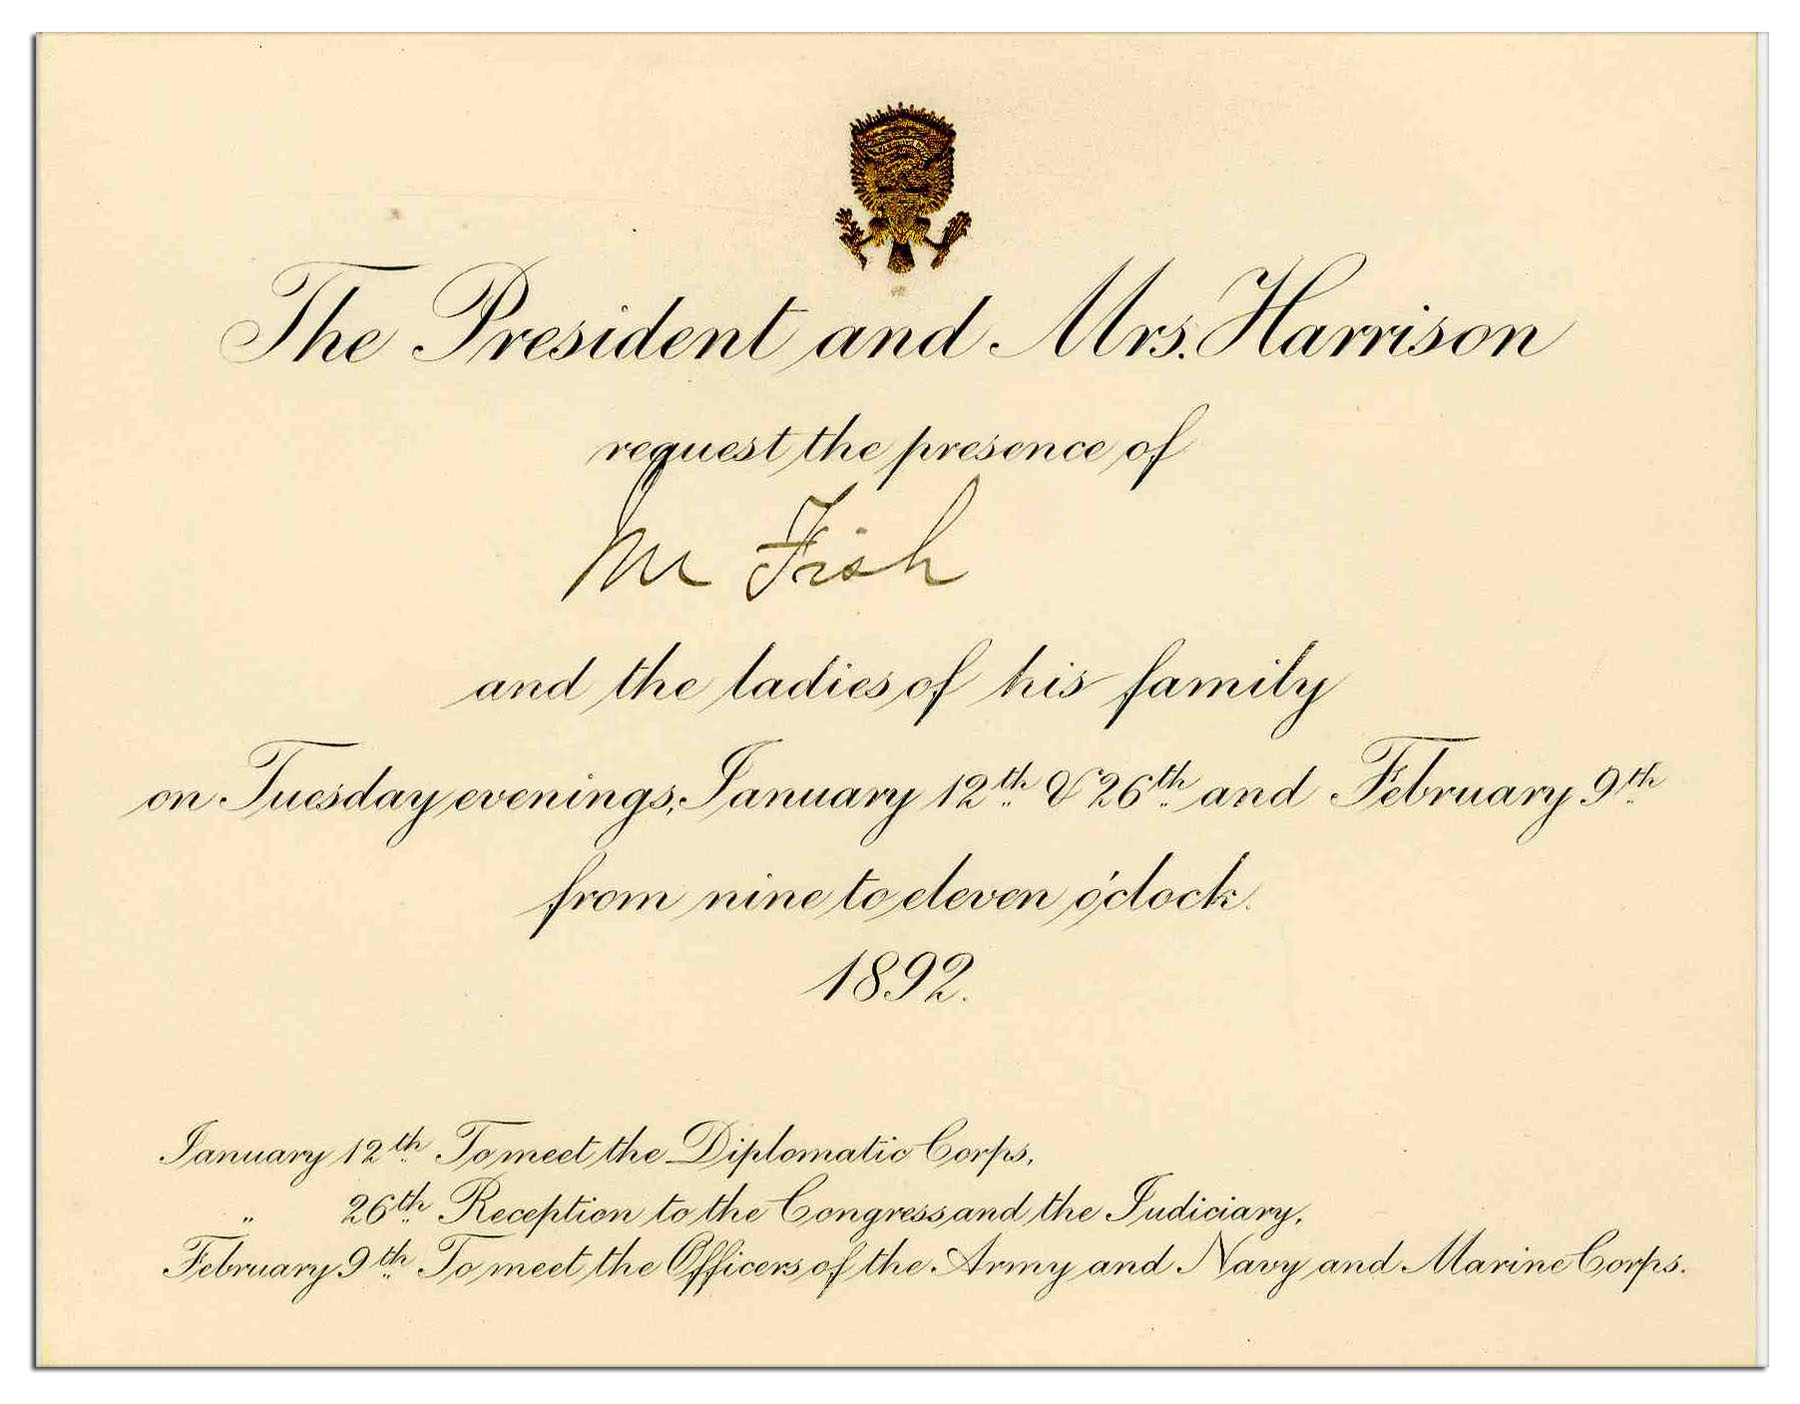 The President and Mrs. Harrison
request the presence of
Mr Fish
and the ladies of his family
on Tuesday evenings, January 12th & 26th and February 9th
from nine to eleven o'clock.
1892.
January 12th To meet the Diplomatic Corps,
" 26th Reception to the Congress and the Judiciary,
February 9th To meet the Officers of the Army and Navy and Marine Corps.